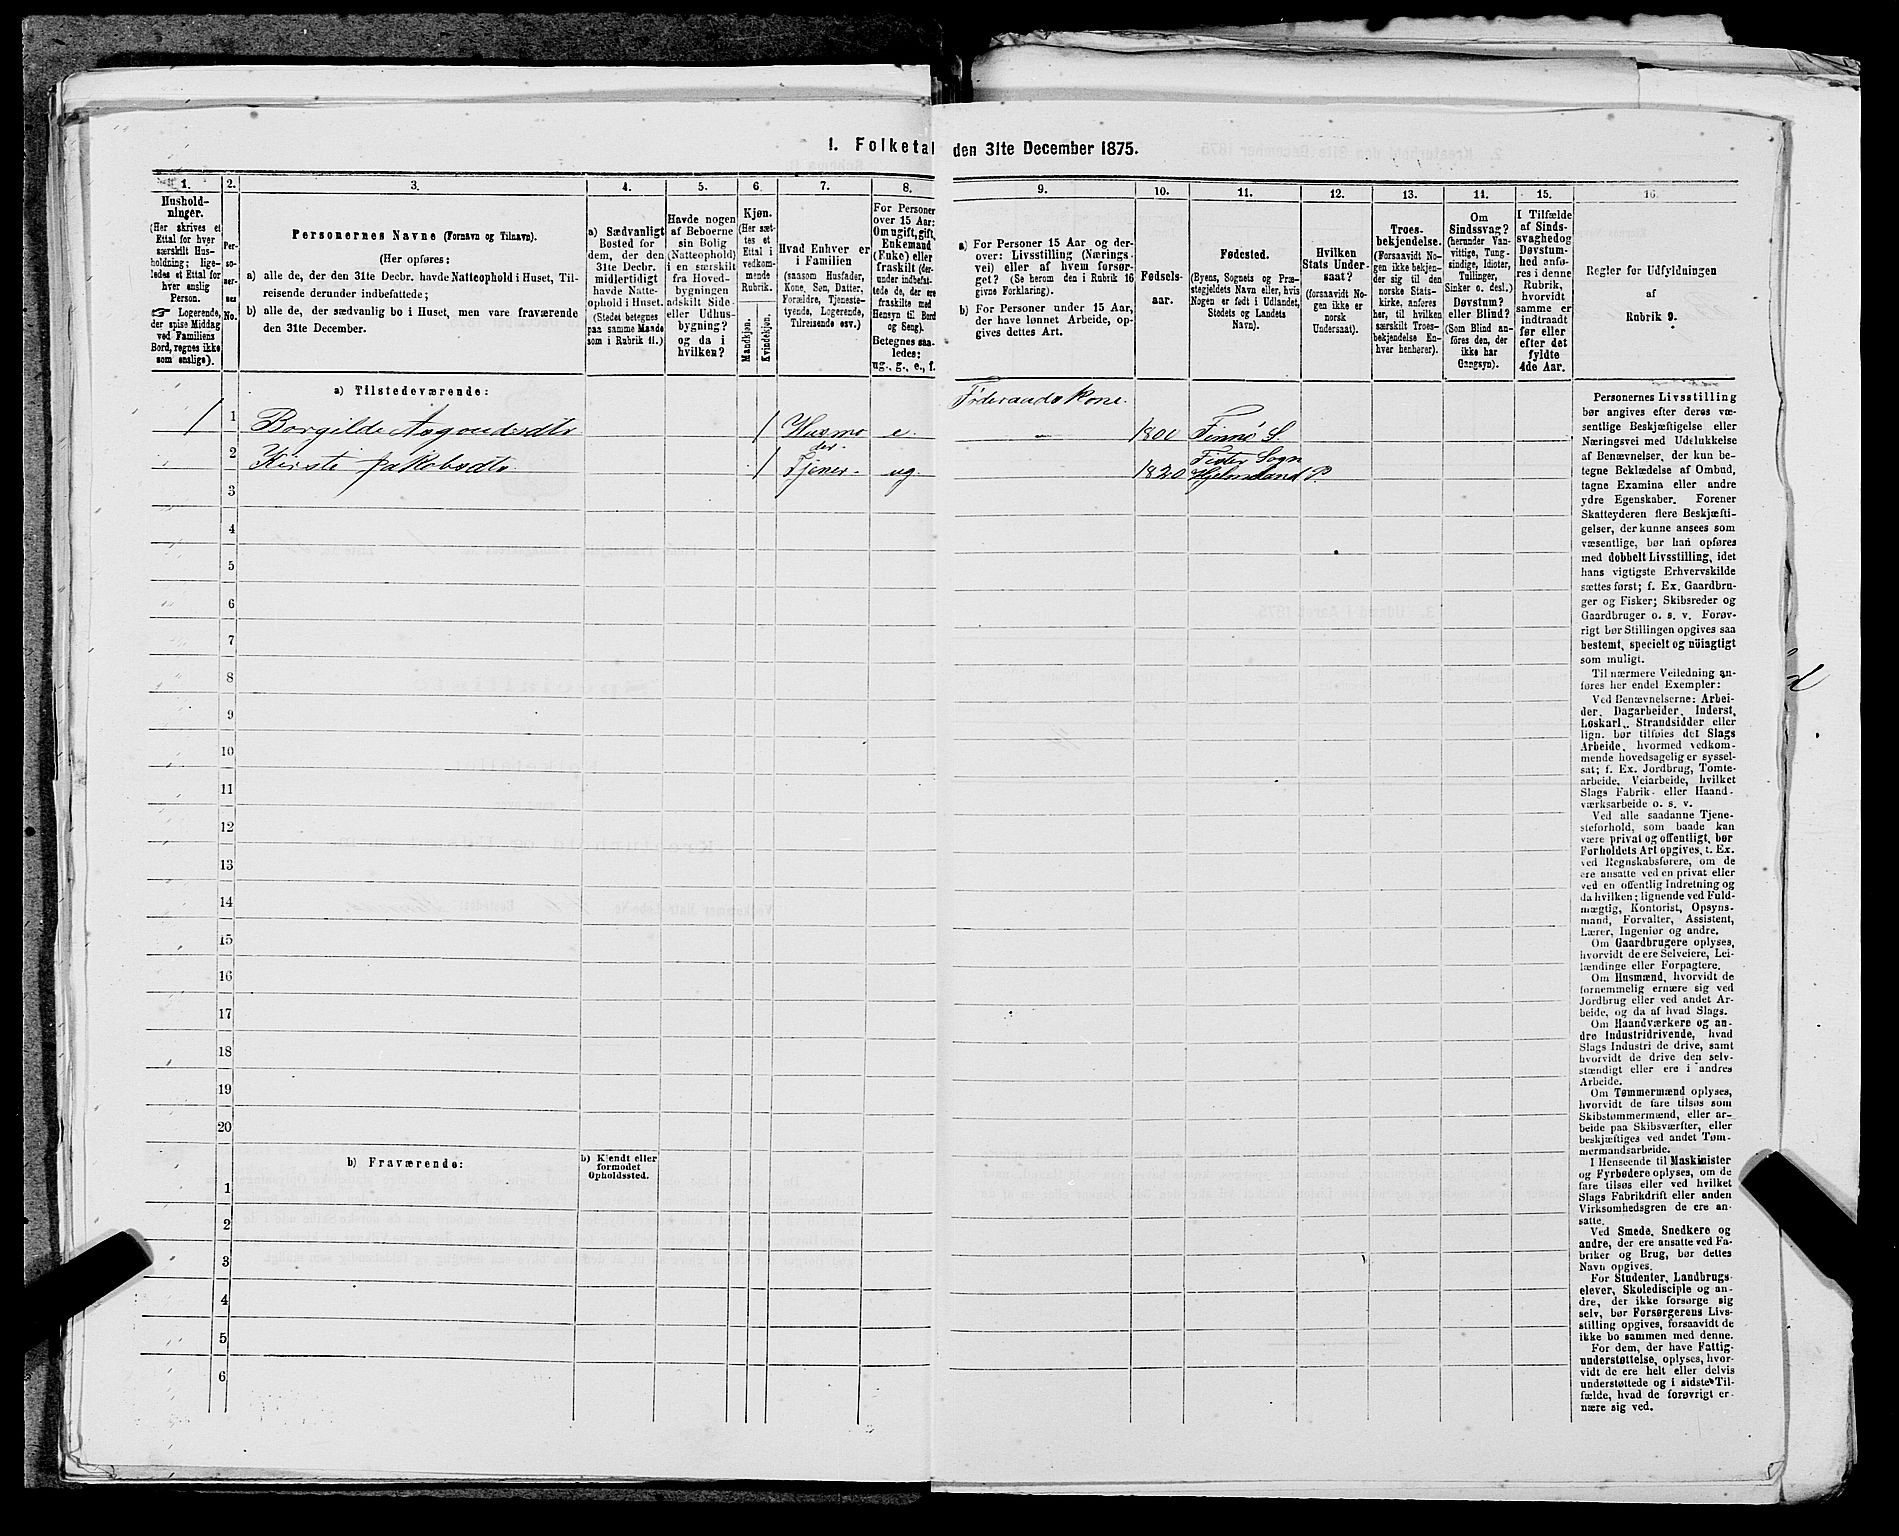 1. Folketal den 31te December 1875.
1.
Hushold-
ninger.
(Her skrives et
Ettal for hver
særskilt Hus-
holdning; lige-
ledes et Ettal for
hver enslig
Person.
☞ Logerende,
der spise Middag
ved Familiens
Bord, regnes ikke
som enslige).
2.
Per-
so-
ner-
nes
No.
3.
Personernes Navne (Fornavn og Tilnavn).
(Her opføres:
a) alle de, der den 31te Decbr. havde Natteophold i Huset, Til-
reisende derunder indbefattede;
b) alle de, der sædvanlig bo i Huset, men vare fraværende
den 31te December.
4.
a) Sædvanligt
Bosted for
dem, der den
31te Decbr.
midlertidigt
havde Natte-
ophold i Huset.
(Stedet betegnes
paa samme Maade
som i Rubrik 11.)
5.
Havde nogen
af Beboerne
sin Bolig
(Natteophold)
i en særskilt
fra Hoved-
bygningen
adskilt Side-
eller Udhus-
bygning?
og da i
hvilken?
6.
Kjøn.
(Her sæt-
tes et
Ettal i
vedkom-
mende
Rubrik.
Mandkjøn.
Kvindekjøn.
7.
Hvad Enhver er
i Familien
(saasom Husfader,
Kone, Søn, Datter,
Forældre, Tjeneste-
tyende, Logerende,
Tilreisende osv.)
8.
For Personer
over 15 Aar:
Om ugift, gift,
Enkemand
(Enke) eller
fraskilt (der-
under indbefat-
tede de, der ere
fraskilte med
Hensyn til Bord
og Seng).
Betegnes saa-
ledes:
ug., g., e., f.
9.
a) For Personer 15 Aar og der-
over: Livsstilling (Nærings-
vei) eller af hvem forsør-
get? (Se herom den i Rubrik 16
givne Forklaring).
b) For Personer under 15 Aar,
der have lønnet Arbeide, op-
gives dettes Art.
10.
Fødsels-
aar.
11.
Fødested.
(Byens, Sognets og Præ-
stegjeldets Navn eller, hvis
Nogen er født i Udlandet,
Stedets og Landets
Navn).
12.
Hvilken
Stats Under-
saat?
(forsaavidt No-
gen ikke er
norsk
Undersaat).
13.
Troes-
bekjendelse.
(Forsaavidt No-
gen ikke bekjen-
der sig til den
norske Stats-
kirke, anføres
her, til hvilken
særskilt Troes-
bekjendelse En-
hver henhører).
14.
Om
Sindssvag?
(herunder Van-
vittige, Tung-
sindige, Idioter,
Tullinger,
Sinker o. desl.)
Døvstum?
eller Blind?
(Som Blind an-
føres den, der
ikke har
Gangsyn).
15.
I Tilfælde
af Sinds-
svaghed og
Døvstum-
hed anfø-
res i denne
Rubrik,
hvorvidt
samme er
indtraadt
før eller
efter det
fyldte
4de Aar.
16.
Regler for Udfyldningen
af
Rubrik 9.
a) Tilstedeværende:
Føderaadskone.
1 1 Borgilde Asgoudsdtr 1 Husmo e. 1800 Finnø S.
der.
2 Kirste Jakobsdtr 1 Tjener ug. 1820 Fister Sogn
Hjelmeland P.
3
4
5
6
7
8
9
10
11
12
13
14
15
16
17
18
19
20
b) Fraværende:
b) Kjendt eller
formodet
Opholdssted.
1
2
3
4
5
6
Personernes Livsstilling
bør angives efter deres væ-
sentlige Beskjæftigelse eller
Næringsvei med Udelukkelse
af Benævnelser, der kun be-
tegne Beklædelse af Ombud,
tagne Examina eller andre
ydre Egenskaber. Forener
Skatteyderen flere Beskjæfti-
gelser, der kunne ansees som
væsentlige, bør han opføres
med dobbelt Livsstilling, idet
hans vigtigste Erhvervskilde
sættes først; f. Ex. Gaardbru-
ger og Fisker; Skibsreder og
Gaardbruger o. s. v. Forøv-
rigt bør Stillingen opgives saa
bestemt, specielt og nöiagtigt
som muligt.
Til nærmere Veiledning an-
føres her endel Exempler:
Ved Benævnelserne: Arbei-
der, Dagarbeider, Inderst,
Løskarl, Strandsidder eller
lign. bør tilføies det Slags
Arbeide, hvormed vedkom-
mende hovedsagelig er syssel-
sat; f. Ex. Jordbrug, Tomte-
arbeide, Veiarbeide, hvilket
Slags Fabrik- eller Haand-
værksarbeide o. s. v.
Ved alle saadanne Tjene-
steforhold, som baade kan
være privat og offentligt, bør
Forholdets Art opgives, t. Ex.
ved Regnskabsførere, om de
ere ansatte ved en privat eller
ved en offentlig Indretning og
da hvilken; lignende ved Fuld-
mægtig, Kontorist, Opsyns-
mand, Forvalter, Assistent,
Lærer, Ingeniør og andre.
Om Gaardbrugere oplyses,
hvorvidt de ere Selveiere, Lei-
lændinge eller Forpagtere.
Om Husmænd, hvorvidt de
fornemmelig ernære sig ved
Jordbrug eller ved andet Ar-
beide, og da af hvad Slags.
Om Haandværkere og an-
dre Industridrivende, hvad
Slags Industri de drive, samt
hvorvidt de drive den selv-
stændigt eller ere i andres
Arbeide.
Om Tømmermænd oplyses,
hvorvidt de fare tilsøs som
Skibstømmermænd, eller ar-
beide paa Skibsværfter, eller
beskjæftiges ved andet Tøm-
mermandsarbeide.
I Henseende til Maskinister
og Fyrbødere oplyses, om de
fare tilsøs eller ved hvilket
Slags Fabrikdrift eller anden
Virksomhedsgren de ere an-
satte.
Ved Smede, Snedkere og
andre, der ere ansatte ved Fa-
briker og Brug, bør dettes
Navn opgives.
For Studenter, Landbrugs-
elever, Skoledisciple og an-
dre, der ikke forsørge sig
selv, bør Forsørgerens Livs-
stilling opgives, forsaavidt de
ikke bo sammen med denne.
For dem, der have Fattig-
understøttelse, oplyses, hvor-
vidt de ere helt eller delvis
understøttede og i sidste Til-
fælde, hvad de forøvrigt er-
nære sig ved.